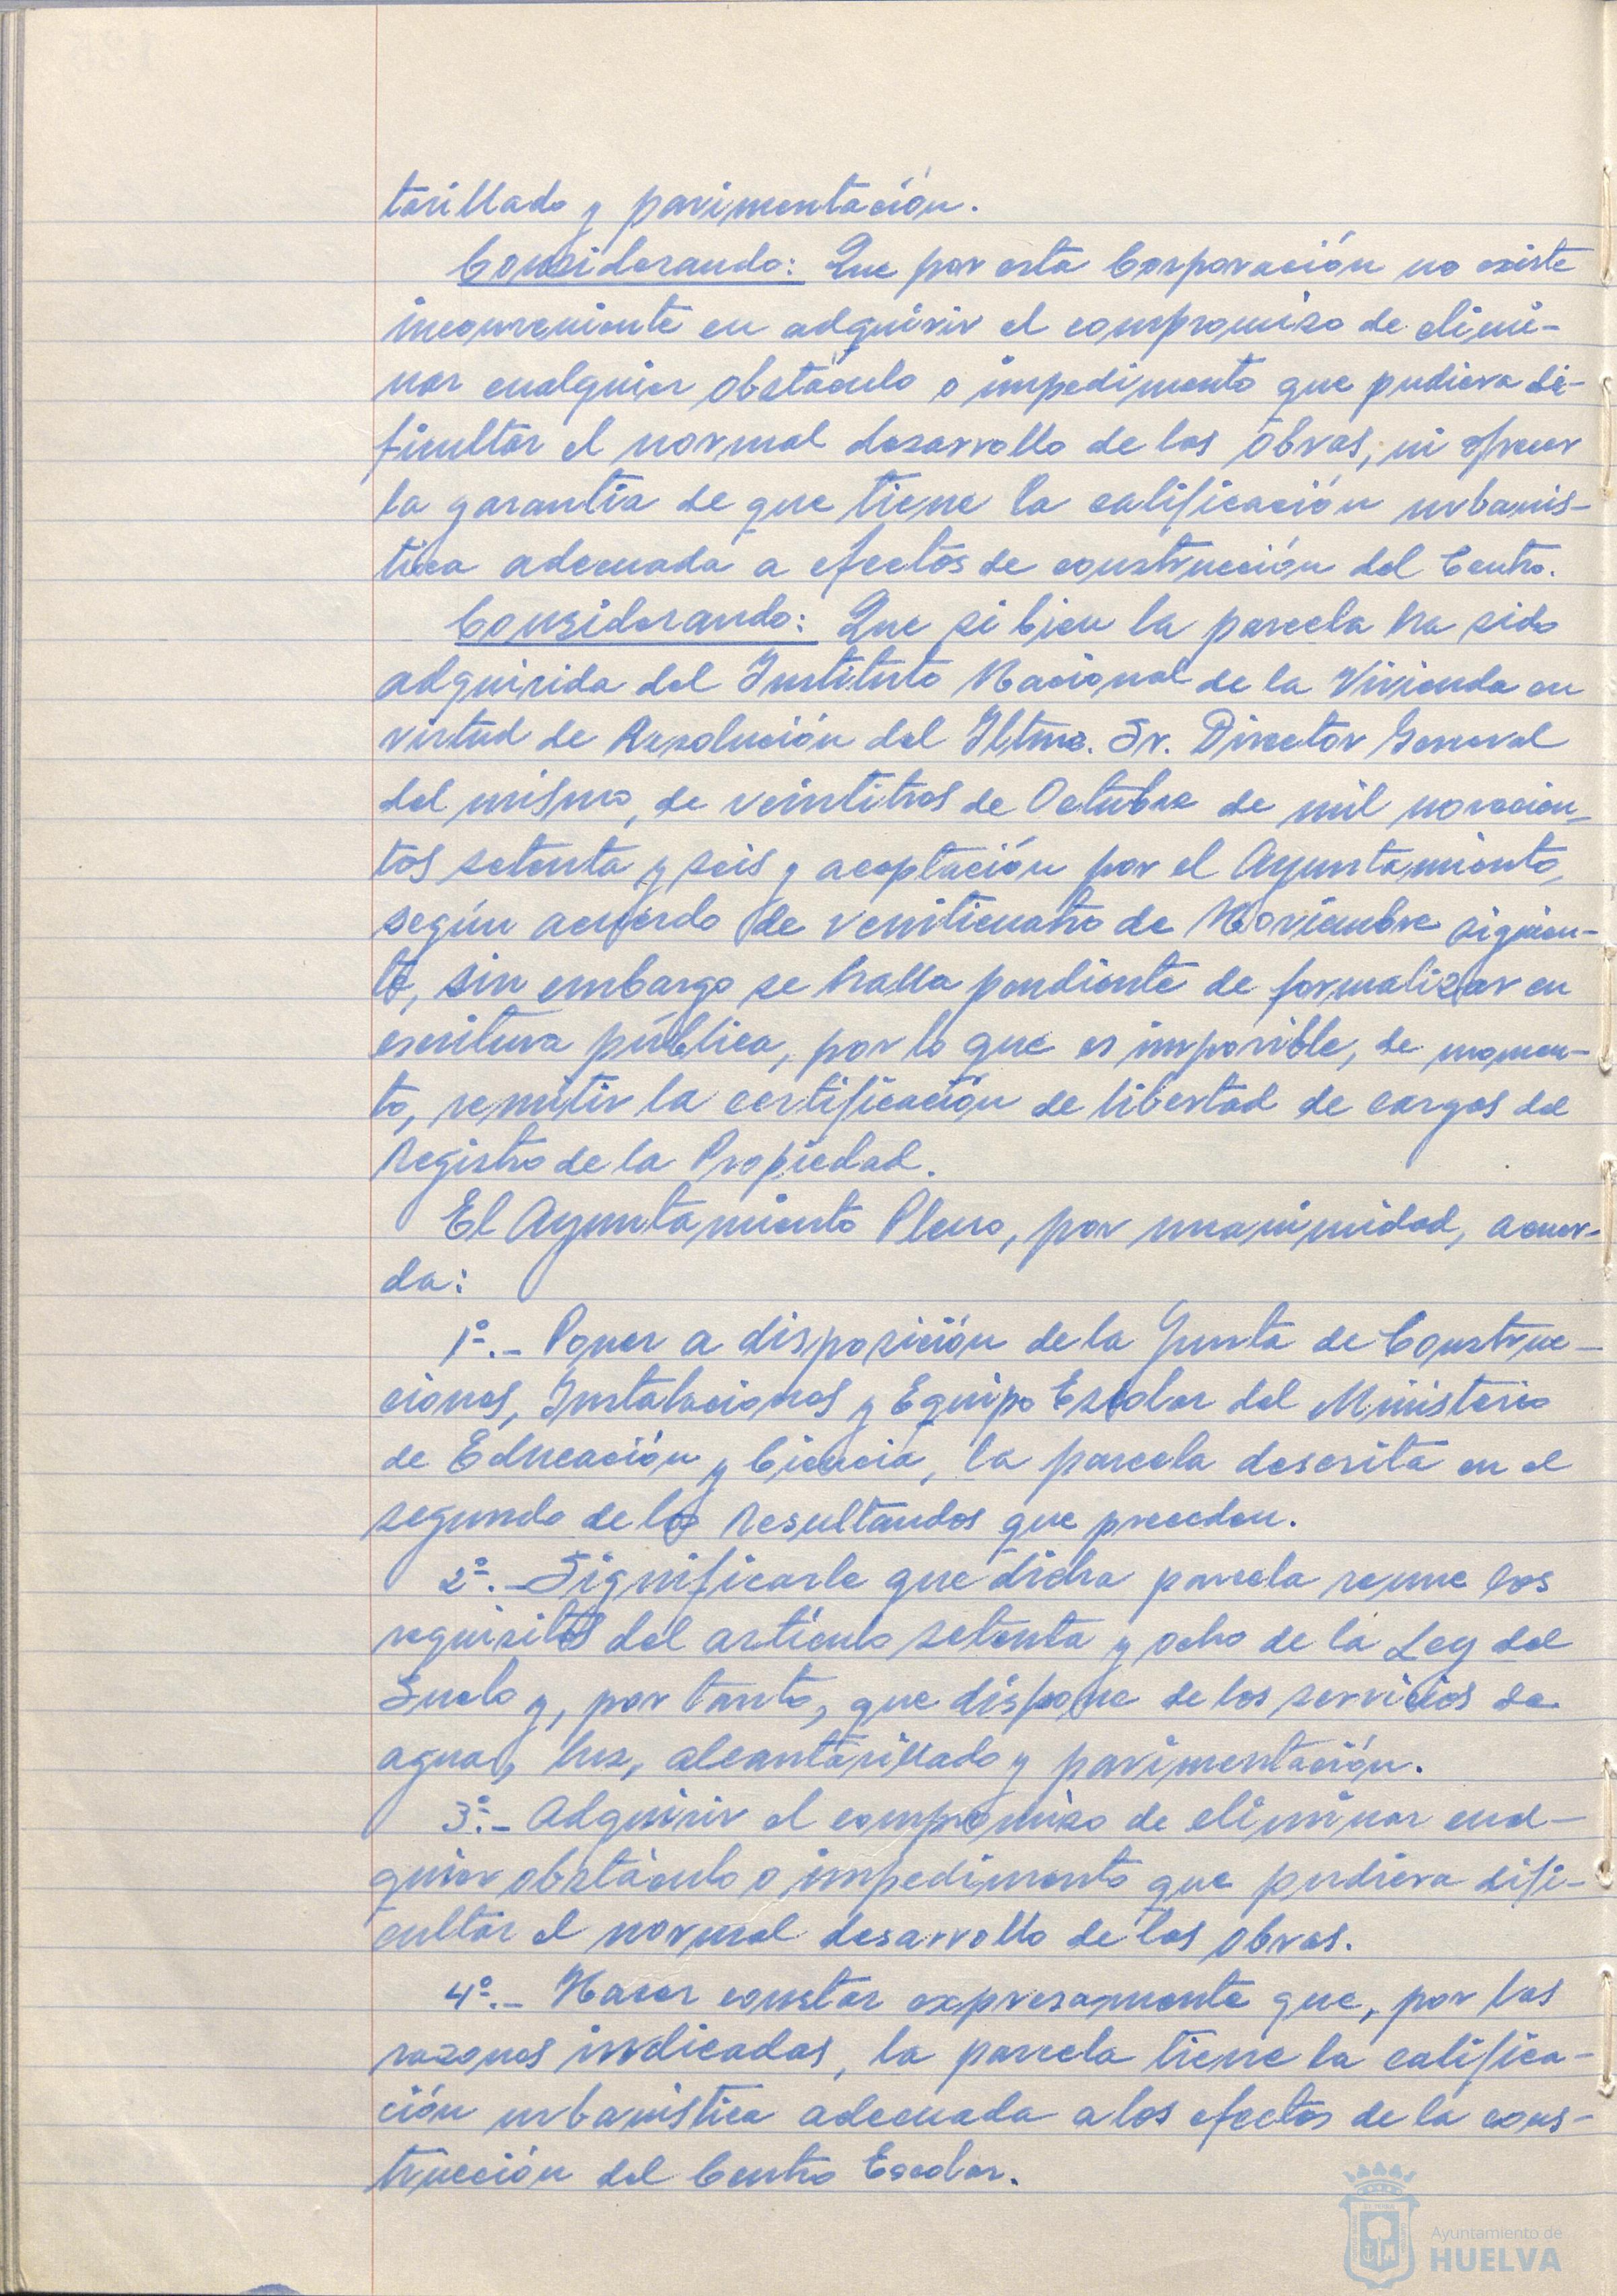 tarillado y pavimentación.
Considerando: Que por esta Corporación no existe
inconveniente en adquirir el compromiso de elimi-
nar cualquier obstáculo o impedimento que pudiera di-
ficultar el normal desarrollo de las obras, ni ofrecer
la garantía de que tiene la calificación urbanís-
tica adecuada a efectos de construcción del Centro.
Considerando: Que si bien la parcela ha sido
adquirida del Instituto Nacional de la Vivienda en
virtud de Resolución del Iltmo. Sr. Director General
del mismo, de veintitres de Octubre de mil novecien-
tos setenta y seis y aceptación por el Ayuntamiento,
según acuerdo de venticuatro de Noviembre siguien-
te, sin embargo se halla pendiente de formalizar en
escritura pública, por lo que es imposible, de momen-
to, remitir la certificación de libertad de cargas del
Registro de la Propiedad.
El Ayuntamiento Pleno, por unanimidad, acuer-
da:
1º.- Poner a disposición de la Junta de Construc-
ciones, Instalaciones y Equipo Escolar del Ministerio
de Educación y Ciencia, la parcela descrita en el
segundo de los Resultandos que preceden.
2º.- Significarle que dicha parcela reune los
requisitos del artículo setenta y ocho de la Ley del
Suelo y, por tanto, que dispone de los servicios de
agua, luz, alcantarillado y pavimentación.
3º.- Adquirir el compromiso de eliminar cual-
quier obstáculo o impedimento que pudiera difi-
cultar el normal desarrollo de las obras.
4º.- Hacer constar expresamente que, por las
razones indicadas, la parcela tiene la califica-
ción urbanística adecuada a los efectos de la cons-
trucción del Centro Escolar.
Ayuntamiento de
HUELVA